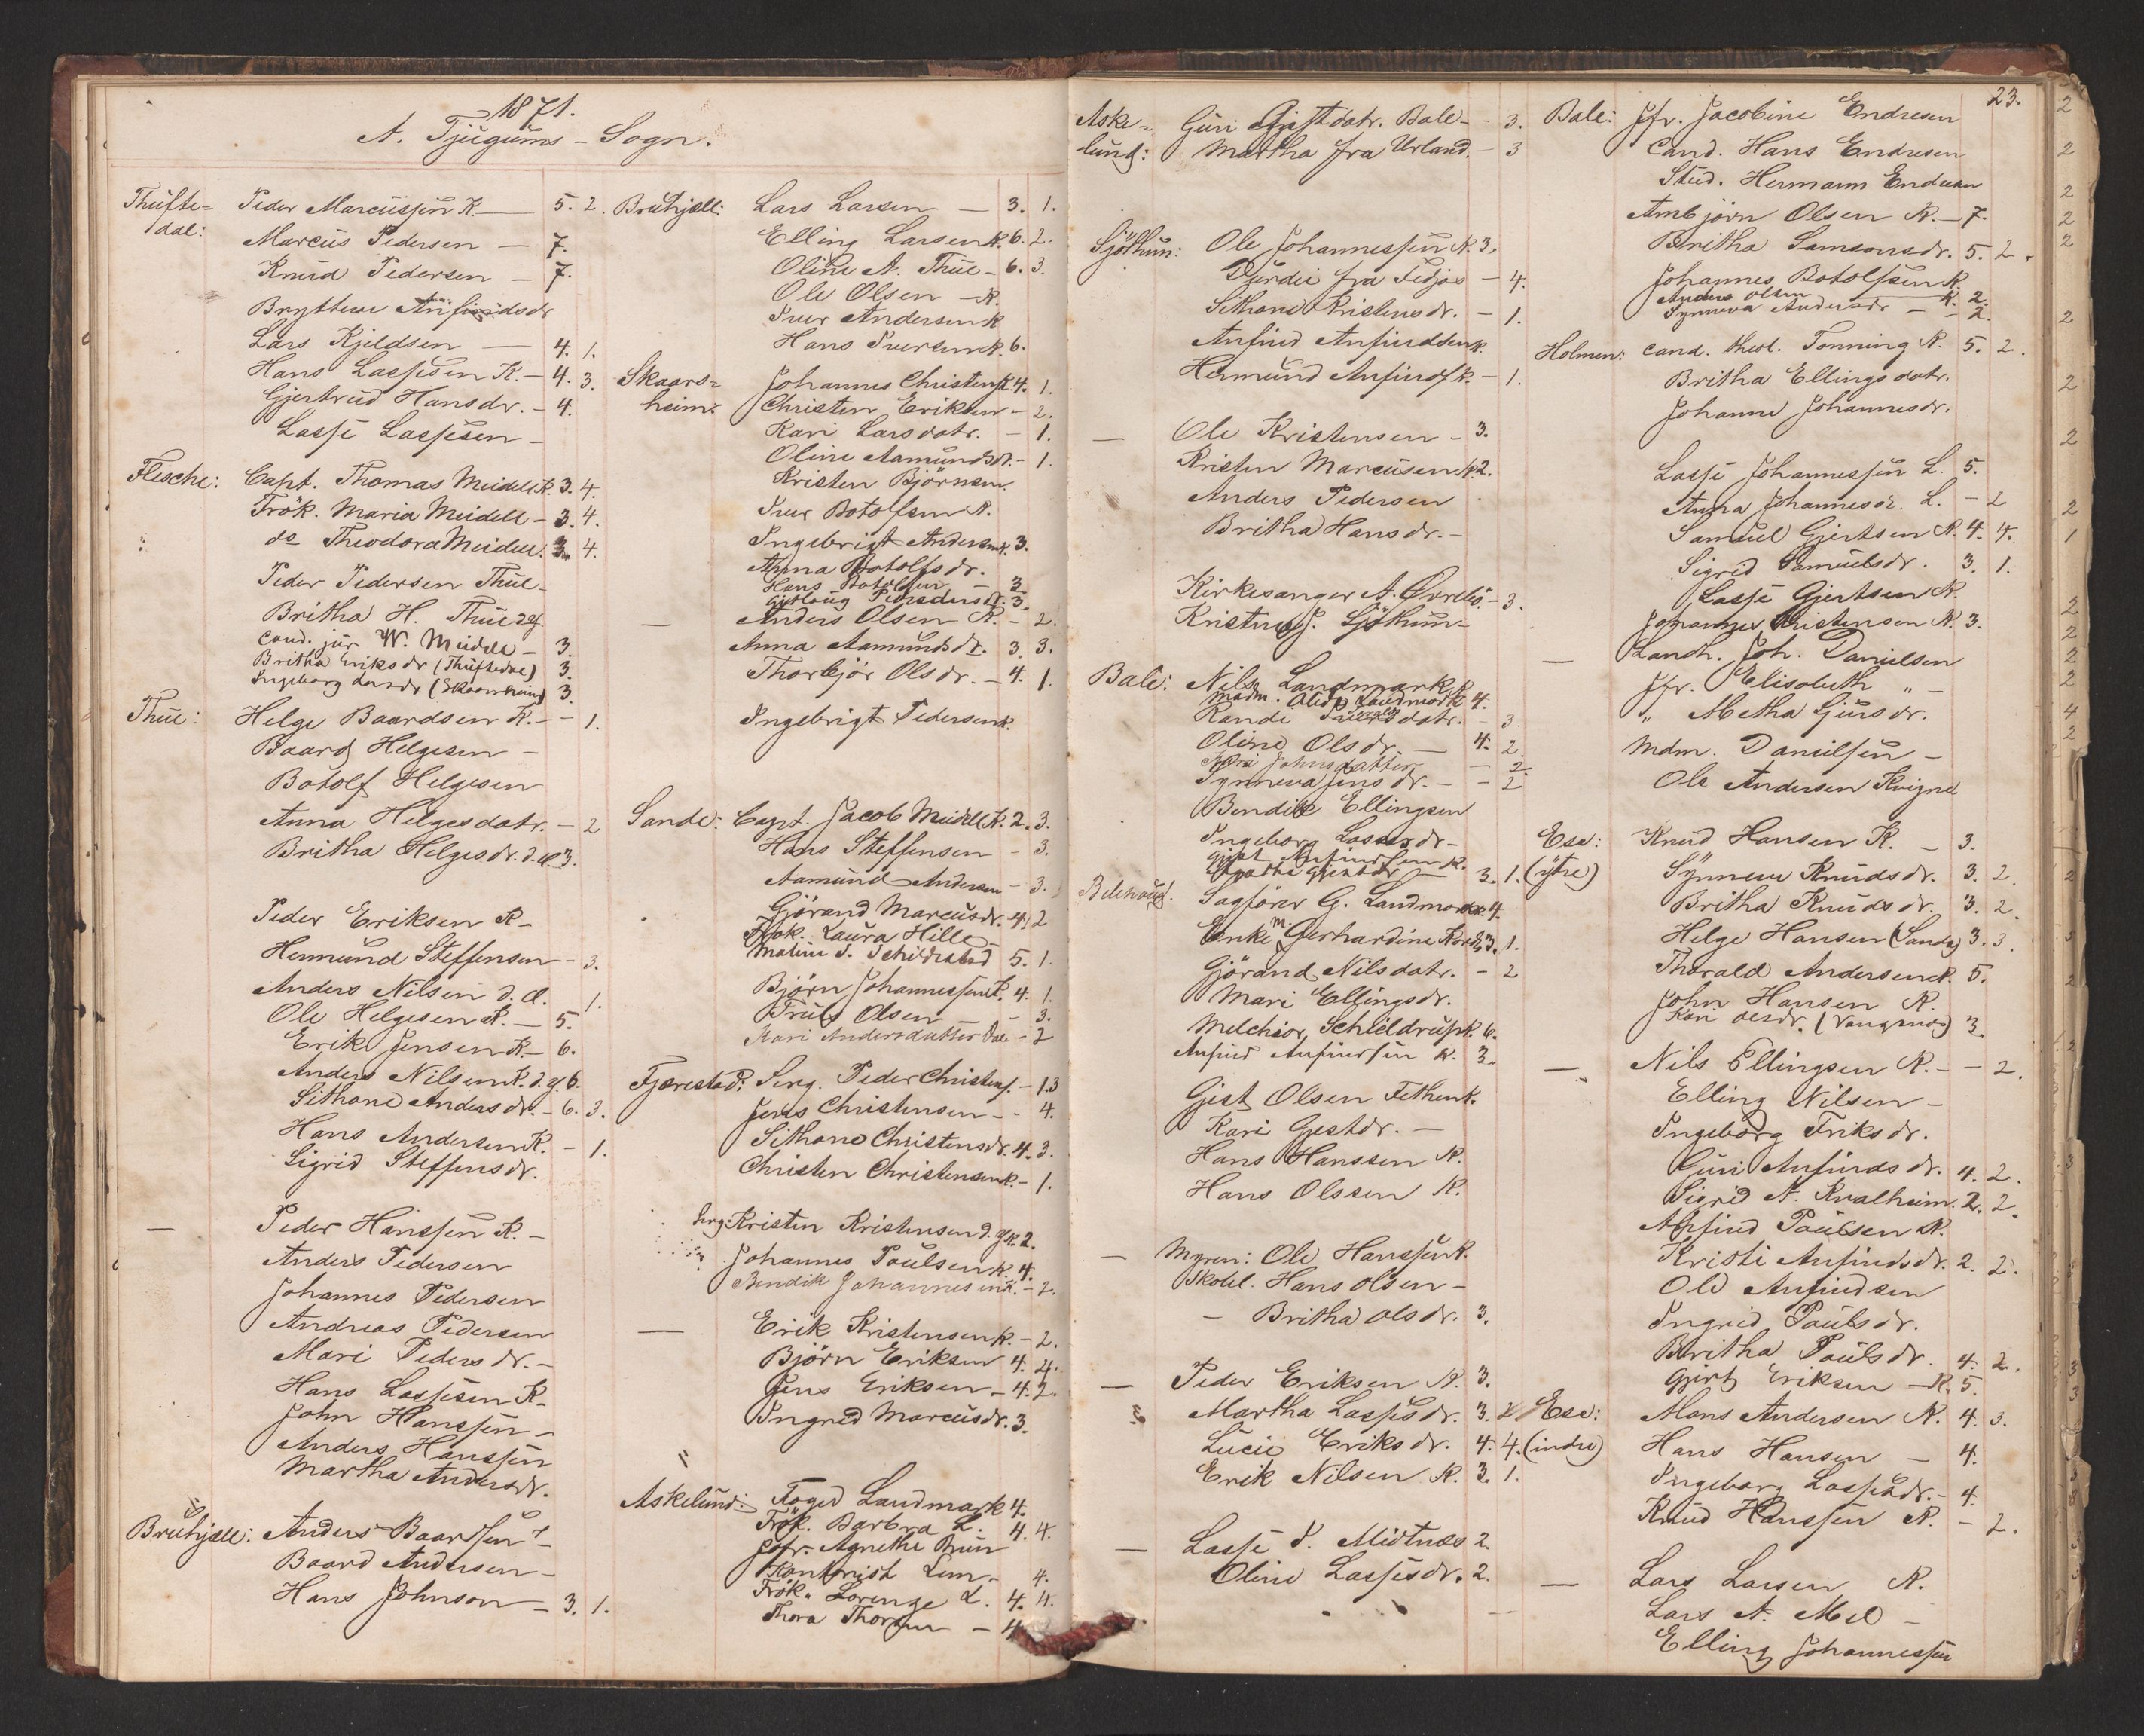 1871.
A. Tjugums - Sogn.
Thufte=
dal:
Peder Marcussen K. — 5. 2.
Marcus Pedersen — 7.
Knud Pedersen — 7.
Brytteve Anfindsdr
Lars Kjeldsen — 4. 1.
Hans Lassesen K. — 4. 3.
Gjertrud Hansdr. - 4.
Lasse Lassesen -
Flesche: Capt. Thomas Meidell K. 3. 4.
Frök. Maria Meidell - 3. 4.
do Theodora Meidell. 3. 4.
Peder Pedersen Thue -
Britha H. Thue d.y.
Cand. jur W. Meidell - 3.
Britha Eriksdr (Thuftedal) 3.
Ingeborg Larsdr (Skaarsheim) 3
Thue: Helge Baardsen K. - - 1.
Baard Helgesen -
Botolf Helgesen
Anna Helgesdatr. - 2
Britha Helgesdr. d.æ. 3.
Peder Eriksen K -
Hermund Steffensen - 3.
Anders Nilsen d. æ. 1.
Ole Helgesen K. — 5.
Erik Jensen K. - 6.
Anders Nilsen K. d. y. 6.
Sithone Andersdr. - 6. 3.
Hans Andersen K. - 1.
Sigrid Steffensdr.
— Peder Hanssen K. -
Anders Pedersen
Johannes Pedersen
Andreas Pedersen
Mari Pedersdr. -
Hans Lassesen K -
John Hanssen -
Anders Hanssen
Martha Andersdr.
Bruhjell: Anders Baardsen -
Baard Andersen -
Hans Johnson - 3. 1.
Bruhjell: Lars Larsen — 3. 1.
Elling Larsen K. 6. 2.
Oline A. Thue - 6. 3.
Ole Olsen - K.
Iver Andersen K
Hans Iversen K. 6.
Skaars=
heim: Johannes Christens. K. 4. 1.
Christen Eriksen - 2.
Kari Larsdatr. - 1.
Oline Aamundsdr. - 1.
Kristen Björnsen.
Iver Botolfsen K.
Ingebrigt Andersen K. 3.
Anna Botolfsdr.
Hans Botolfsen - 3
Gjertoug Pedersdr 3.
— Anders Olsen K. - 2.
Anna Aamundsdr. 3. 3.
Thorbjör Olsdr. - 4. 1.
Ingebrigt Pedersen K.
Sande: Capt. Jacob Meidell K. 2. 3.
Hans Steffensen - 3.
Aamund Andersen - 3.
Gjörand Marcusdr. 4. 2
Frök. Laura Hille -
Maline S. Schildrstad 5. 1.
Björn Johannessen K. 4. 1.
Truls Olsen - 3.
Kari Andersdatter Dale - 2
Fjærestad: Serg. Peder Christens. - 1. 3
Jens Christensen - - 4.
Sithone Christensdr. 4. 3.
Christen Christensen K. - 1.
Serg. Kristen Kristensen d. y. K. 2.
Johannes Poulsen K. 4.
Bendik Johannesen K. - 2.
— Erik Kristensen K. - 2.
Björn Eriksen 4. 4.
Jens Eriksen - 4. 2.
Ingred Marcusdr. 3.
Askelund: Foged Landmark 4.
Frök. Barbra L. 4. 4.
Jofr. Agnethe Brun
Kontorist Lem - 4.
Frök. Lorenze L. 4. 4.
Thora Thorsen - 4
Aske=
lund:
Guri Gjestdatr. Bale - - 3.
Martha fra Urland. - 3
Sjöthun: Ole Johannessen K. 3.
Durdei fra Fedjos - 4.
Sithone Kristensdr. - 1.
Anfind Anfindsen K.
Hermund Anfinds. K. - 1.
— Ole Kristensen - 3.
Kristen Marcusen K. 2.
Anders Pedersen
Britha Hansdr. -
Kirkesanger A. Övrebö. - 3.
Kristine J. Sjöthun -
Bale: Nils Landmark K
Madm. Alida Landmark 4.
Rande datr. - 3.
Oline Olsdr. — 4. 2.
Johnsdatter - 2
Synneva Jensdr. - - 2
Bendik Ellingsen
Ingeborg Lassesdr -
Gjest Anfindsen K.
Martha Gjestdr — 3. 1.
Belehaug. Sagförer G. Landmark K. 4.
Enkem. Gerhardine Nord 3. 1.
Gjörand Nilsdatr. - 2
Mari Ellingsdr.
Melchior Schieldrup K. 6.
Anfind Anfindsen K. 3.
Gjest Olsen Fethen K.
Kari Gestdr. -
Hans Hanssen K.
Hans Olssen K.
— Myren: Ole Hanssen K.
Skolel. Hans Olsen -
- Britha Olsdr. 3.
— Peder Eriksen K. 3.
Martha Lassesdr. 3. 2
Lucie Eriksdr. 4. 4.
Erik Nilsen K. 3. 1.
— Lasse I. Midtnæs 2.
Oline Lassesdr. 2.
23.
Bale: Jfr. Jacobine Endresen
Cand. Hans Endresen
Stud. Hermann Endresen
Ambjörn Olsen K. - 7.
Britha Samsonsdr. 5. 2.
Johannes Botolfsen K.
Anders Olsen — K. 2.
Synneva Andersdr - - 2.
Holmen: cand. theol. Tonning K. 5. 2.
Britha Ellingsdatr.
Johanne Johannesdr.
Lasse Johannessen L. 5.
Anna Johannesdr. L. - 2
Samuel Gjertsen K. 4. 4.
Sigrid Samuelsdr. 3. 1.
Lasse Gjertsen K.
Johannes Kristensen K. 3.
— Landh. Joh. Danielsen
Jfr. Elisabeth " -
" Metha Gjursdr.
Mdm. Danielsen -
Ole Andersen Kvigne
Ese:
(ytre)
Knud Hansen K. - 3.
Synneve Knudsdr. 3. 2.
Britha Knudsdr. 3. 2.
Helge Hansen (Sande) 3. 3.
Thorald Andersen K. 5.
John Hansen K.
Kari Olsdr. (Vangsnæs) 3.
— Nils Ellingsen K. - - 2.
Elling Nilsen -
Ingeborg Eriksdr.
Guri Anfindsdr. 4. 2.
Sigrid N. Kvalheim. 2. 2.
Anfind Poulsen K.
Kristi Anfindsdr. 2. 2.
Ole Anfindsen
Ingrid Poulsdr.
Britha Poulsdr. 4. 2.
Gjert Eriksen - K. 5.
Ese:
(indre)
Mons Andersen K. 4. 3.
Hans Hansen - 4.
Ingeborg Lassesdr. - 4.
Knud Hanssen K. - 2.
— Lars Larsen K.
Lars A. Mel -
Elling Johannessen